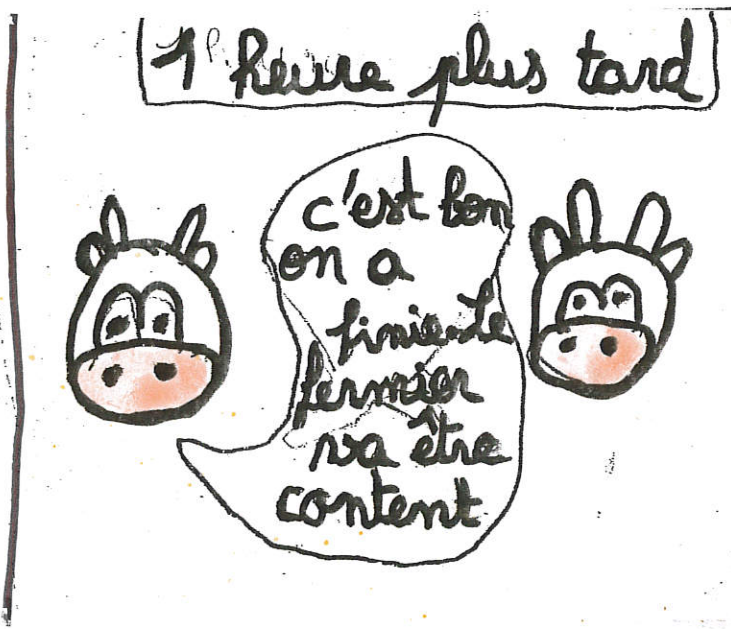 1 heure plus tard
c'est bon
on a
finie Le
fermier
va être
content